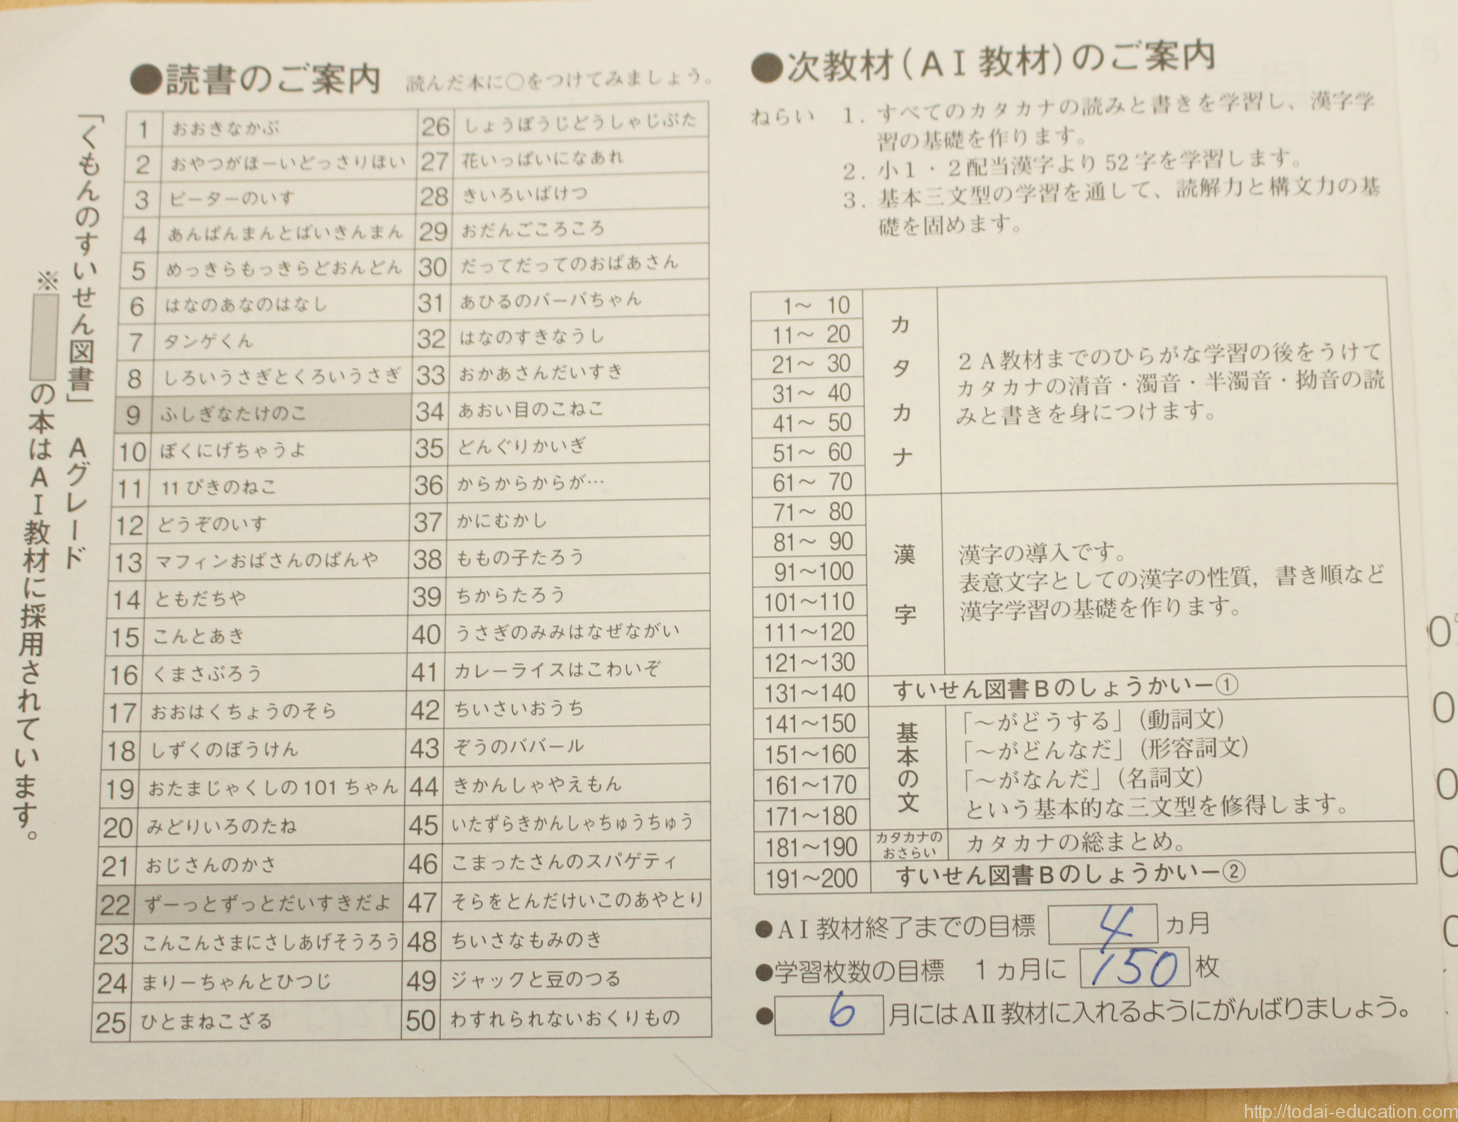 ●読書のご案内 読んだ本に○をつけてみましょう。
「くもんのすいせん図書」 Aグレード
※　　の本はAⅠ教材に採用されています。
1 おおきなかぶ
2 おやつがほーいどっさりほい
3 ピーターのいす
4 あんぱんまんとばいきんまん
5 めっきらもっきらどおんどん
6 はなのあなのはなし
7 タンゲくん
8 しろいうさぎとくろいうさぎ
9 ふしぎなたけのこ
10 ぼくにげちゃうよ
11 11ぴきのねこ
12 どうぞのいす
13 マフィンおばさんのぱんや
14 ともだちや
15 こんとあき
16 くまさぶろう
17 おおはくちょうのそら
18 しずくのぼうけん
19 おたまじゃくしの101ちゃん
20 みどりいろのたね
21 おじさんのかさ
22 ずーっとずっとだいすきだよ
23 こんこんさまにさしあげそうろう
24 まりーちゃんとひつじ
25 ひとまねこざる
26 しょうぼうじどうしゃじぷた
27 花いっぱいになあれ
28 きいろいばけつ
29 おだんごころころ
30 だってだってのおばあさん
31 あひるのバーバちゃん
32 はなのすきなうし
33 おかあさんだいすき
34 あおい目のこねこ
35 どんぐりかいぎ
36 からからからが…
37 かにむかし
38 ももの子たろう
39 ちからたろう
40 うさぎのみみはなぜながい
41 カレーライスはこわいぞ
42 ちいさいおうち
43 ぞうのババール
44 きかんしゃやえもん
45 いたずらきかんしゃちゅうちゅう
46 こまったさんのスパゲティ
47 そらをとんだけいこのあやとり
48 ちいさなもみのき
49 ジャックと豆のつる
50 わすれられないおくりもの
●次教材(AⅠ教材)のご案内
ねらい 1. すべてのカタカナの読みと書きを学習し、漢字学
習の基礎を作ります。
2. 小1・2配当漢字より52字を学習します。
3. 基本三文型の学習を通して、読解力と構文力の基
礎を固めます。
1〜 10
11〜 20
21〜 30
31〜 40
41〜 50
51〜 60
61〜 70
カタカナ
2A教材までのひらがな学習の後をうけて
カタカナの清音・濁音・半濁音・拗音の読
みと書きを身につけます。
71〜 80
81〜 90
91〜100
101〜110
111〜120
121〜130
漢字
漢字の導入です。
表意文字としての漢字の性質，書き順など
漢字学習の基礎を作ります。
131〜140 すいせん図書Bのしょうかいー①
141〜150
151〜160
161〜170
171〜180
基本の文
「〜がどうする」(動詞文)
「〜がどんなだ」(形容詞文)
「〜がなんだ」(名詞文)
という基本的な三文型を修得します。
181〜190 カタカナのおさらい カタカナの総まとめ。
191〜200 すいせん図書Bのしょうかいー②
●AⅠ教材終了までの目標 4 ヵ月
●学習枚数の目標 1ヵ月に 150 枚
● 6 月にはAⅡ教材に入れるようにがんばりましょう。
http://todai-education.com